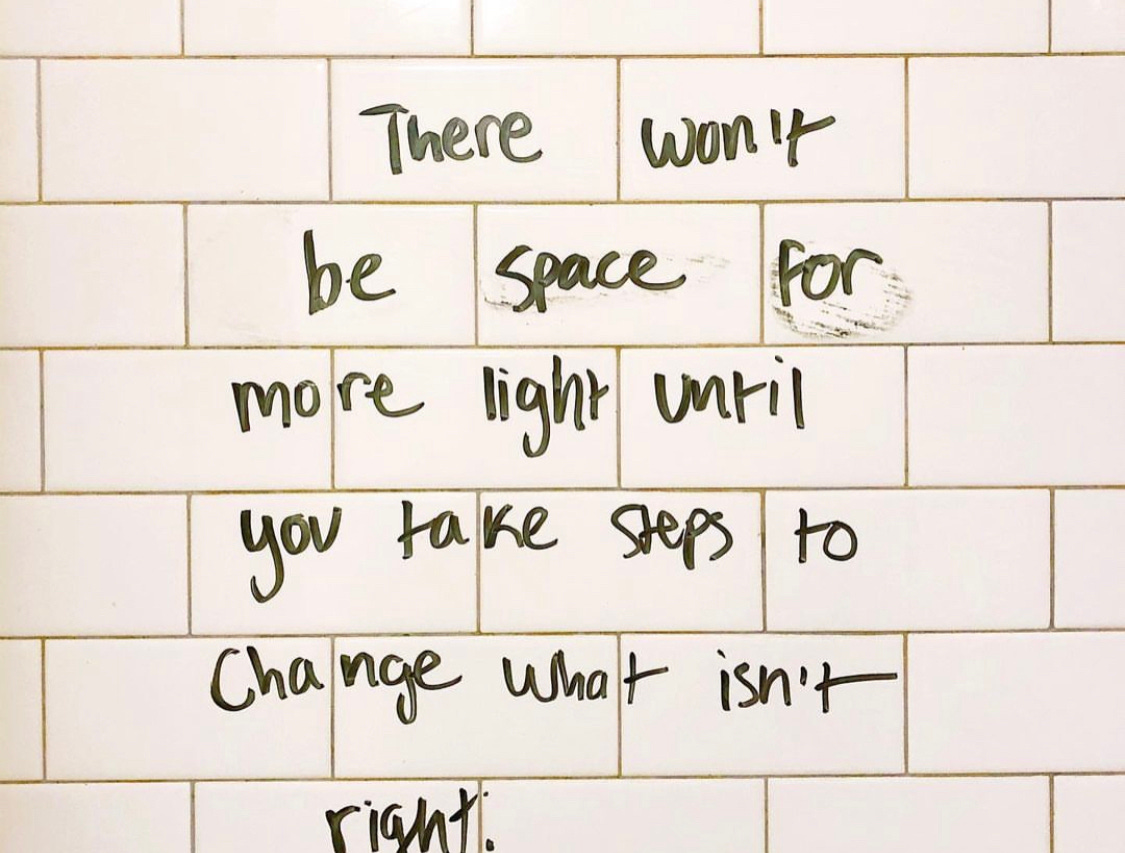 There won't
be space for
more light until
you take steps to
Change what isn't
right.